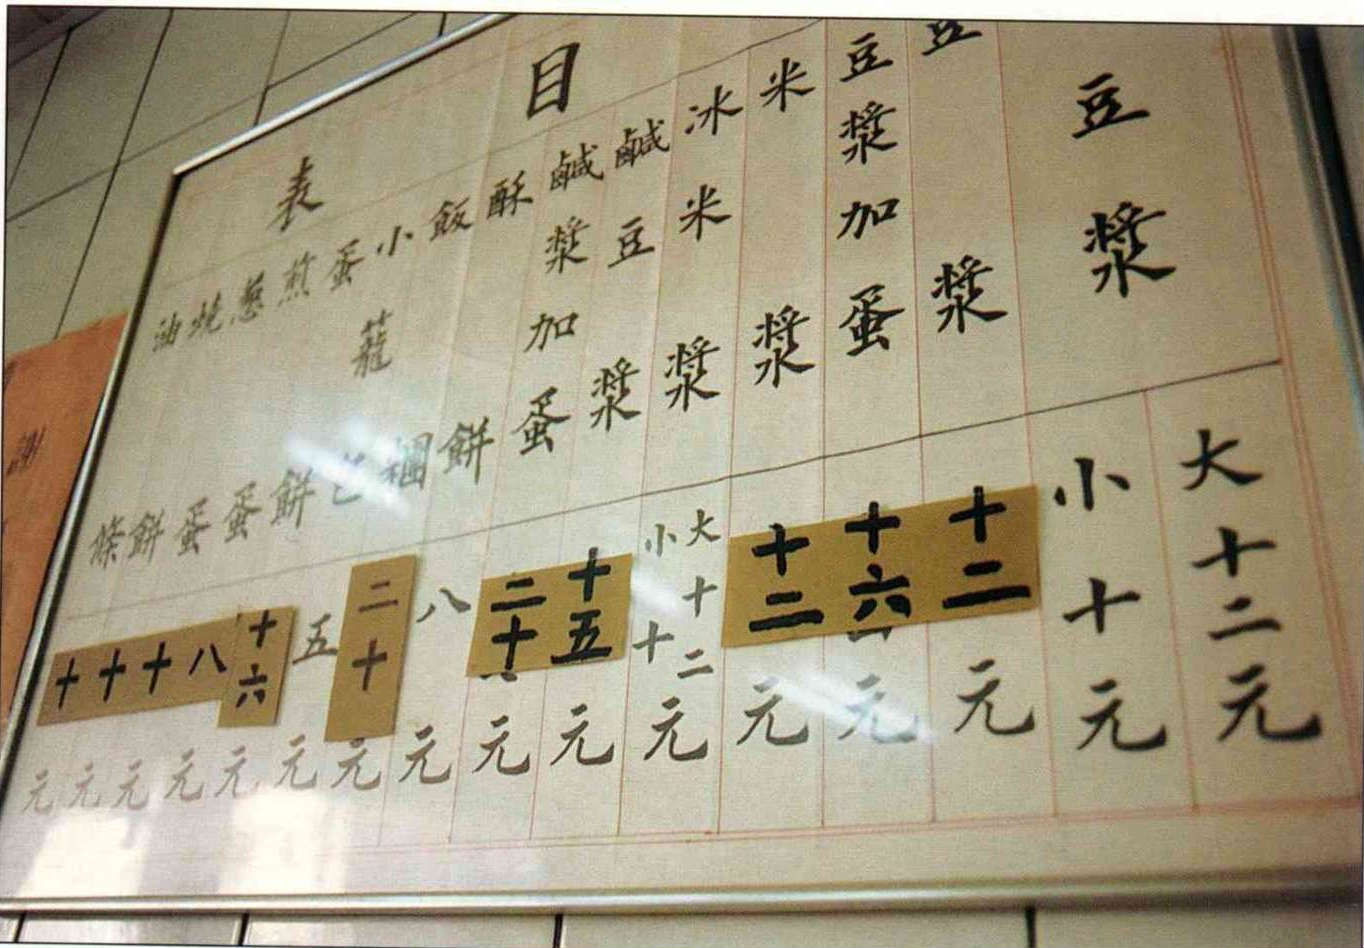 目表
豆漿 大十二元
小十元
豆漿 十二元
豆漿加蛋 十六元
米漿 十二元
冰米漿 大十二 小十 元
鹹豆漿 十五元
鹹漿加蛋 二十元
酥餅 八元
飯糰 二十元
小蘢包 五元
蛋餅 十六元
煎蛋 八元
葱蛋 十元
燒餅 十元
油條 十元
謝